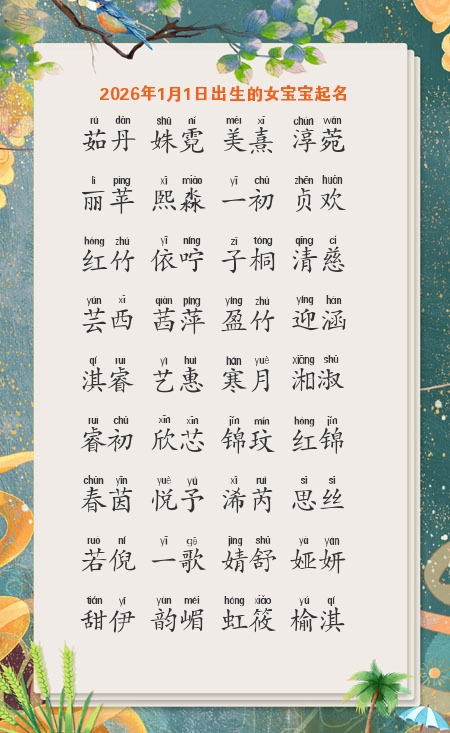 2026年1月1日出生的女宝宝起名
rú dān shū ní měi xī chún wǎn
茹丹 姝霓 美熹 淳菀
lì píng xī miǎo yī chū zhēn huān
丽苹 熙淼 一初 贞欢
hóng zhú yī níng zǐ tóng qīng cí
红竹 依咛 子桐 清慈
yún xī qiàn píng yíng zhú yíng hán
芸西 茜萍 盈竹 迎涵
qí ruì yì huì hán yuè xiāng shū
淇睿 艺惠 寒月 湘淑
ruì chū xīn xīn jǐn mín hóng jǐn
睿初 欣芯 锦玟 红锦
chūn yīn yuè yǔ xī ruì sī sī
春茵 悦予 浠芮 思丝
ruò ní yī gē jìng shū yà yán
若倪 一歌 婧舒 娅妍
tián yī yùn méi hóng xiǎo yú qí
甜伊 韵嵋 虹筱 榆淇